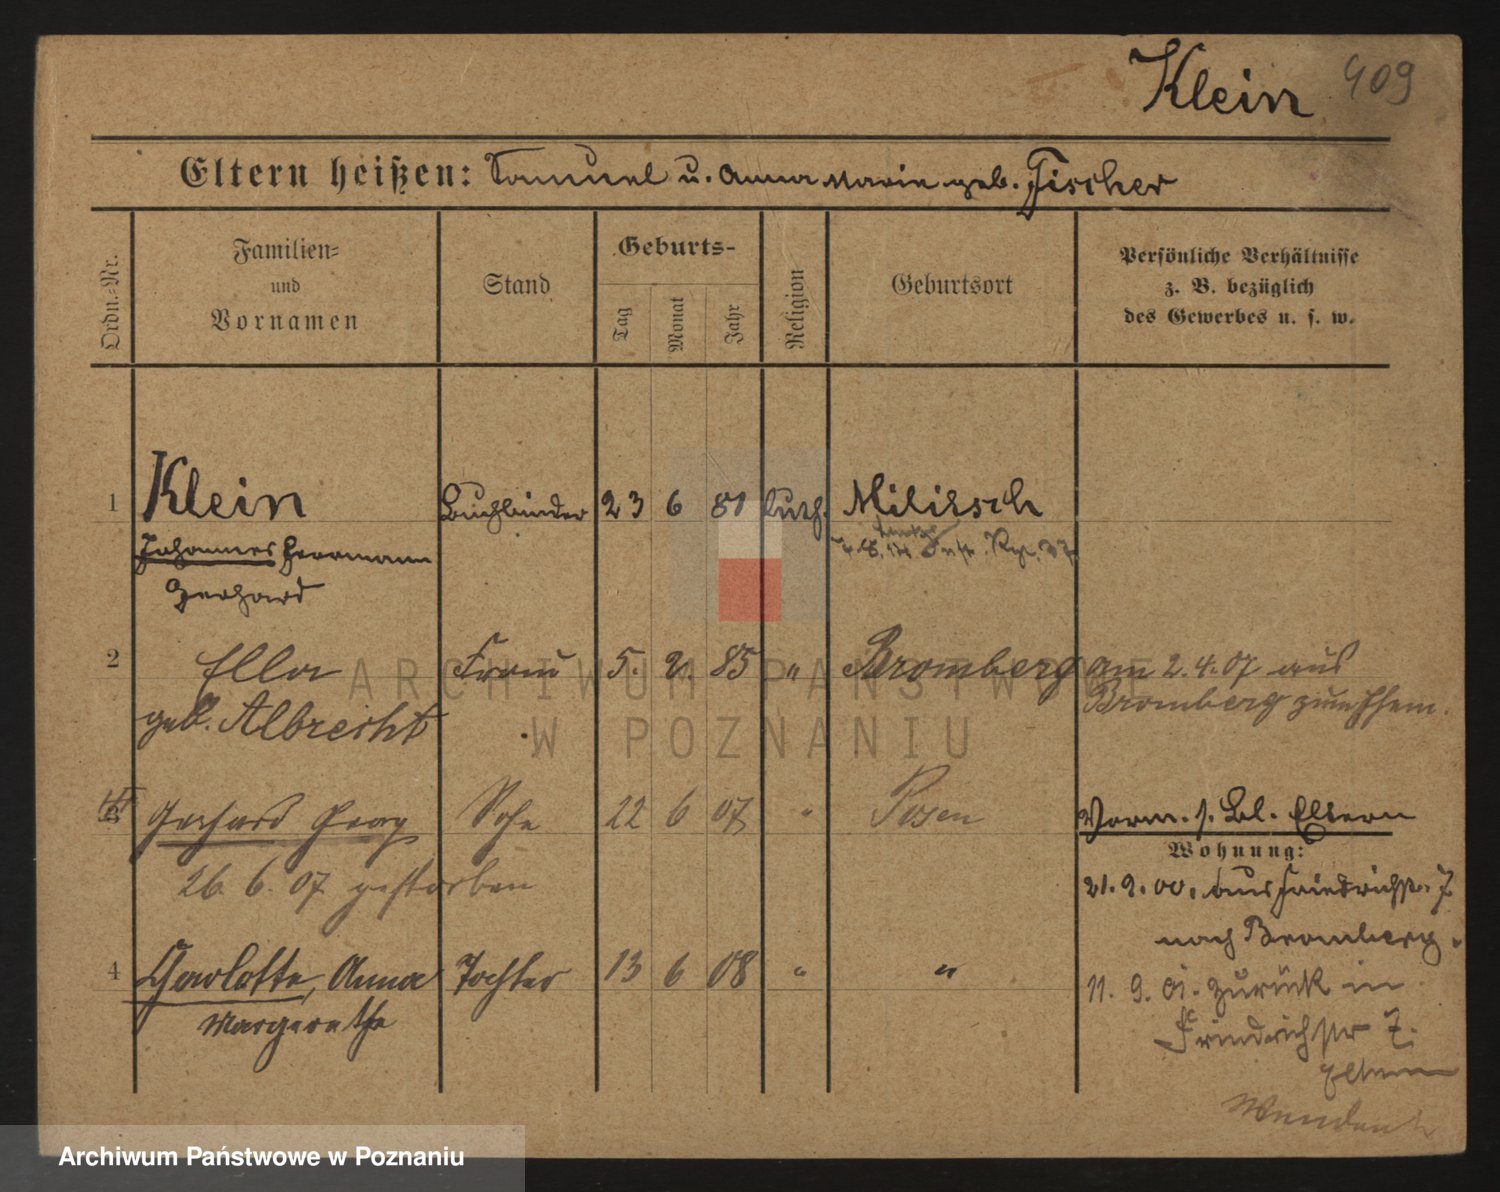 Klein 409
Eltern heißen: Samuel u. Anna Marie geb. Fischer
Ordn.-Nr.
Familien-
und
Vornamen
Stand
Geburts-
Tag
Monat
Jahr
Religion
Geburtsort
Persönliche Verhältnisse
z. B. bezüglich
des Gewerbes u. s. w.
1 Klein Buchbinder 23 6 81 luth. Militsch
Johannes Herrmann
Gerhard
2 Ella Frau 5. 2. 85 " Bromberg am 2.4.07 aus
geb. Albrecht Bromberg zum Ehem.
3 Gerhard Georg Sohn 22 6 07 " Posen
26. 6. 07 gestorben
Vorm. s. Bl. Eltern
Wohnung:
21. 9. 00. aus Friedrichstr. 7
nach Bromberg.
4 Charlotte, Anna Tochter 13 6 08 " "
Margarethe
11. 9. 01. zurück in
Friedrichstr 7.
Eltern
Wenden
ARCHIWUM PAŃSTWOWE
W POZNANIU
Archiwum Państwowe w Poznaniu